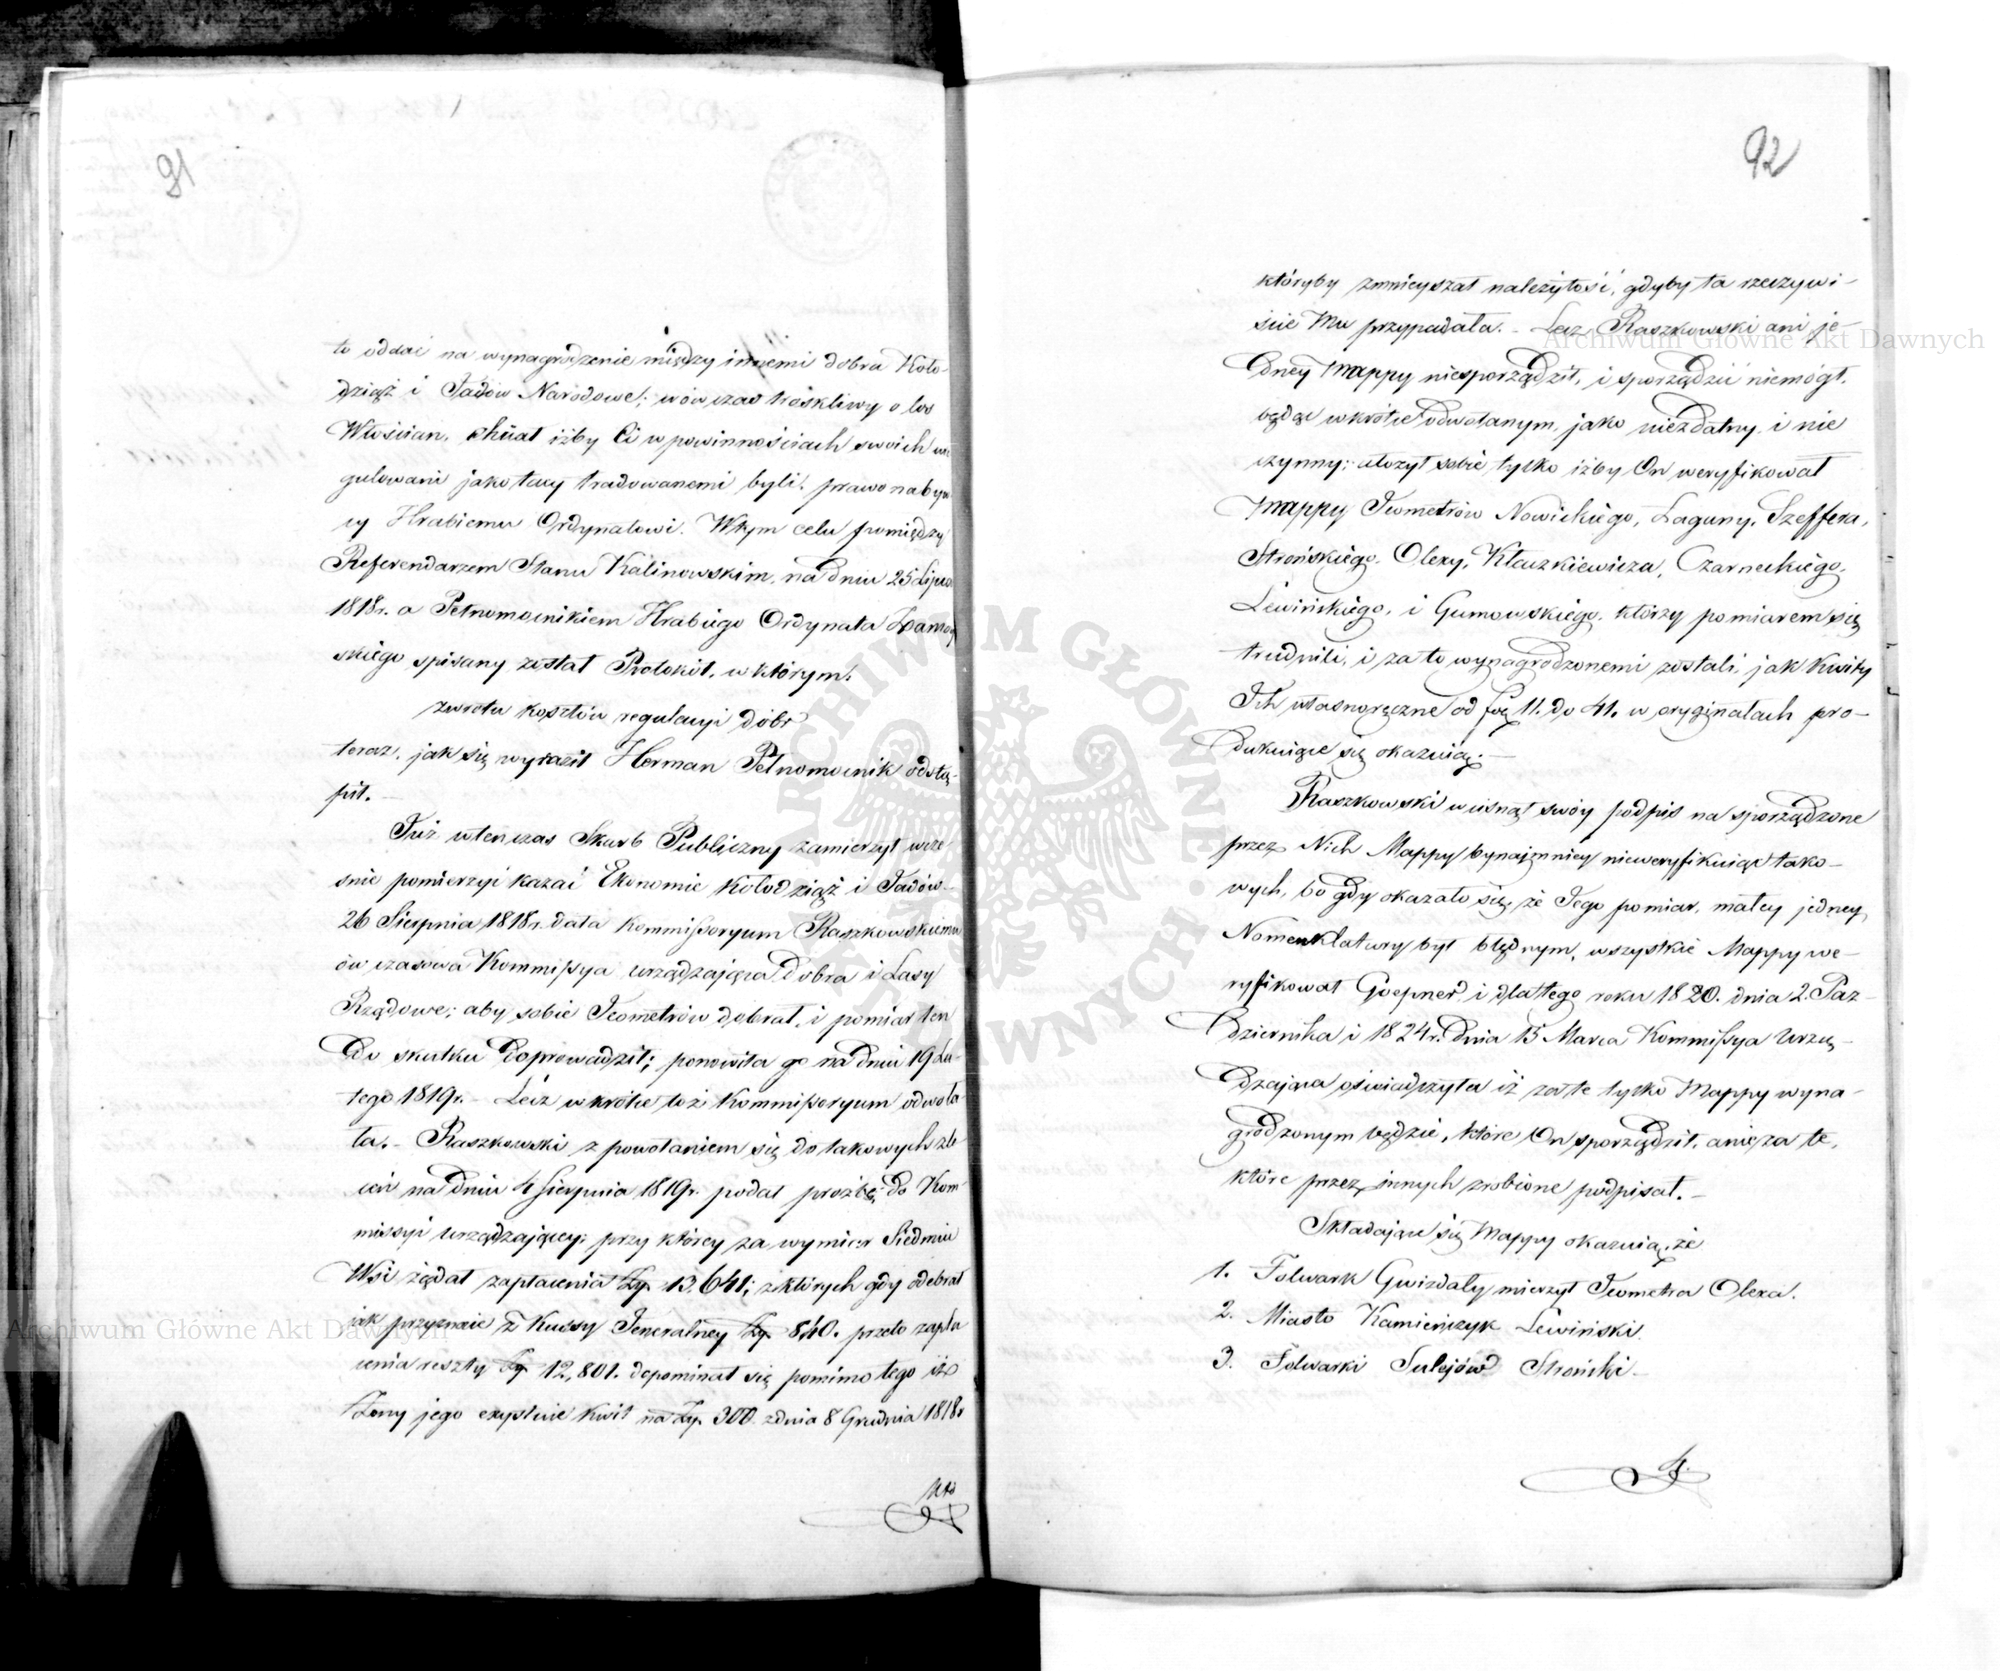 91
to oddać na wynagrodzenie między innemi dobra Koło-
dziąż i Jadów Narodowe; wówczas troskliwy o los
Włościan, chciał iżby Ci w powinnościach swoich ure
gulowani jako tacy tradowanemi byli, prawo nabyw
cy Hrabiemu Ordynatowi. W tym celu pomiędzy
Referendarzem Stanu Kalinowskim, na dniu 25 Lipca
1818r. a Pełnomocnikiem Hrabiego Ordynata Zamoy
skiego spisany został Protokół, w którym:
zwrotu kosztów regulacyi dóbr
teraz, jak się wyraził Herman Pełnomocnik odstą-
pił. —
Już wtenczas Skarb Publiczny zamierzył wcze
śnie pomierzyć kazać Ekonomie Kołodziąż i Jadów.
26 Sierpnia 1818r. dała Kommissoryum Raszkowskiemu
ówczasowa Kommissya urządzająca Dobra i Lasy
Rządowe; aby sobie Jeometrów dobrał, i pomiar ten
do skutku doprowadził; ponowiła go na dniu 19 Lu-
tego 1819r. – Lecz wkrótce toż Kommissoryum odwoła-
ła. – Raszkowski z powołaniem się do takowych zle
ceń na dniu 4 Sierpnia 1819r. podał prozbę do Kom-
missyi urządzającey; przy którey za wymiar Siedmiu
Wsi żądał zapłacenia Zp. 13,641; z których gdy odebrał
jak przyznaie z Kassy Jeneralney Zp. 840. przeto zapła
cenia reszty Zp 12,801. dopominał się pomimo tego iż
Żony jego exystuie kwit na Zp. 300. z dnia 8 Grudnia 1818r
któ
92
któryby zmnieyszał należytość, gdyby ta rzeczywi-
ście Mu przypadała. – Lecz Raszkowski ani je-
dney Mappy niesporządził, i sporządzić niemógł,
będąc wkrótce odwołanym, jako niezdatny i nie
czynny; ułożył sobie tylko iżby On weryfikował
Mappy Jeometrów Nowickiego, Laguny, Szeffera,
Strońskiego, Olexy, Kłaczkiewicza, Czarneckiego,
Lewińskiego, i Gumowskiego, którzy pomiarem się
trudnili, i za to wynagrodzonemi zostali, jak Kwity
Ich własnoręczne od foę 11. do 41. w oryginałach pro-
dukuiące się okazuią. —
Raszkowski wcisnął swóy podpis na sporządzone
przez Nich Mappy bynajmniey nieweryfikuiąc tako-
wych, bo gdy okazało się, że Jego pomiar, małey jedney
Nomenklatury był błędnym, wszystkie Mappy we-
ryfikował Goepner, i dlatego roku 1820. dnia 2. Paz-
dziernika i 1824r. dnia 15 Marca Kommissya Urzą-
dzająca oświadczyła iż za te tylko Mappy wyna-
grodzonym będzie, które On sporządził, a nie za te,
które przez innych zrobione podpisał. –
Składające się Mappy okazuią, że
1. Folwark Gwizdały mierzył Jeometra Olexa.
2. Miasto Kamieńczyk Lewiński.
3. Folwarki Sulejów Stroński –
4.
Archiwum Główne Akt Dawnych
Archiwum Główne Akt Dawnych
ARCHIWUM GŁÓWNE AKT DAWNYCH